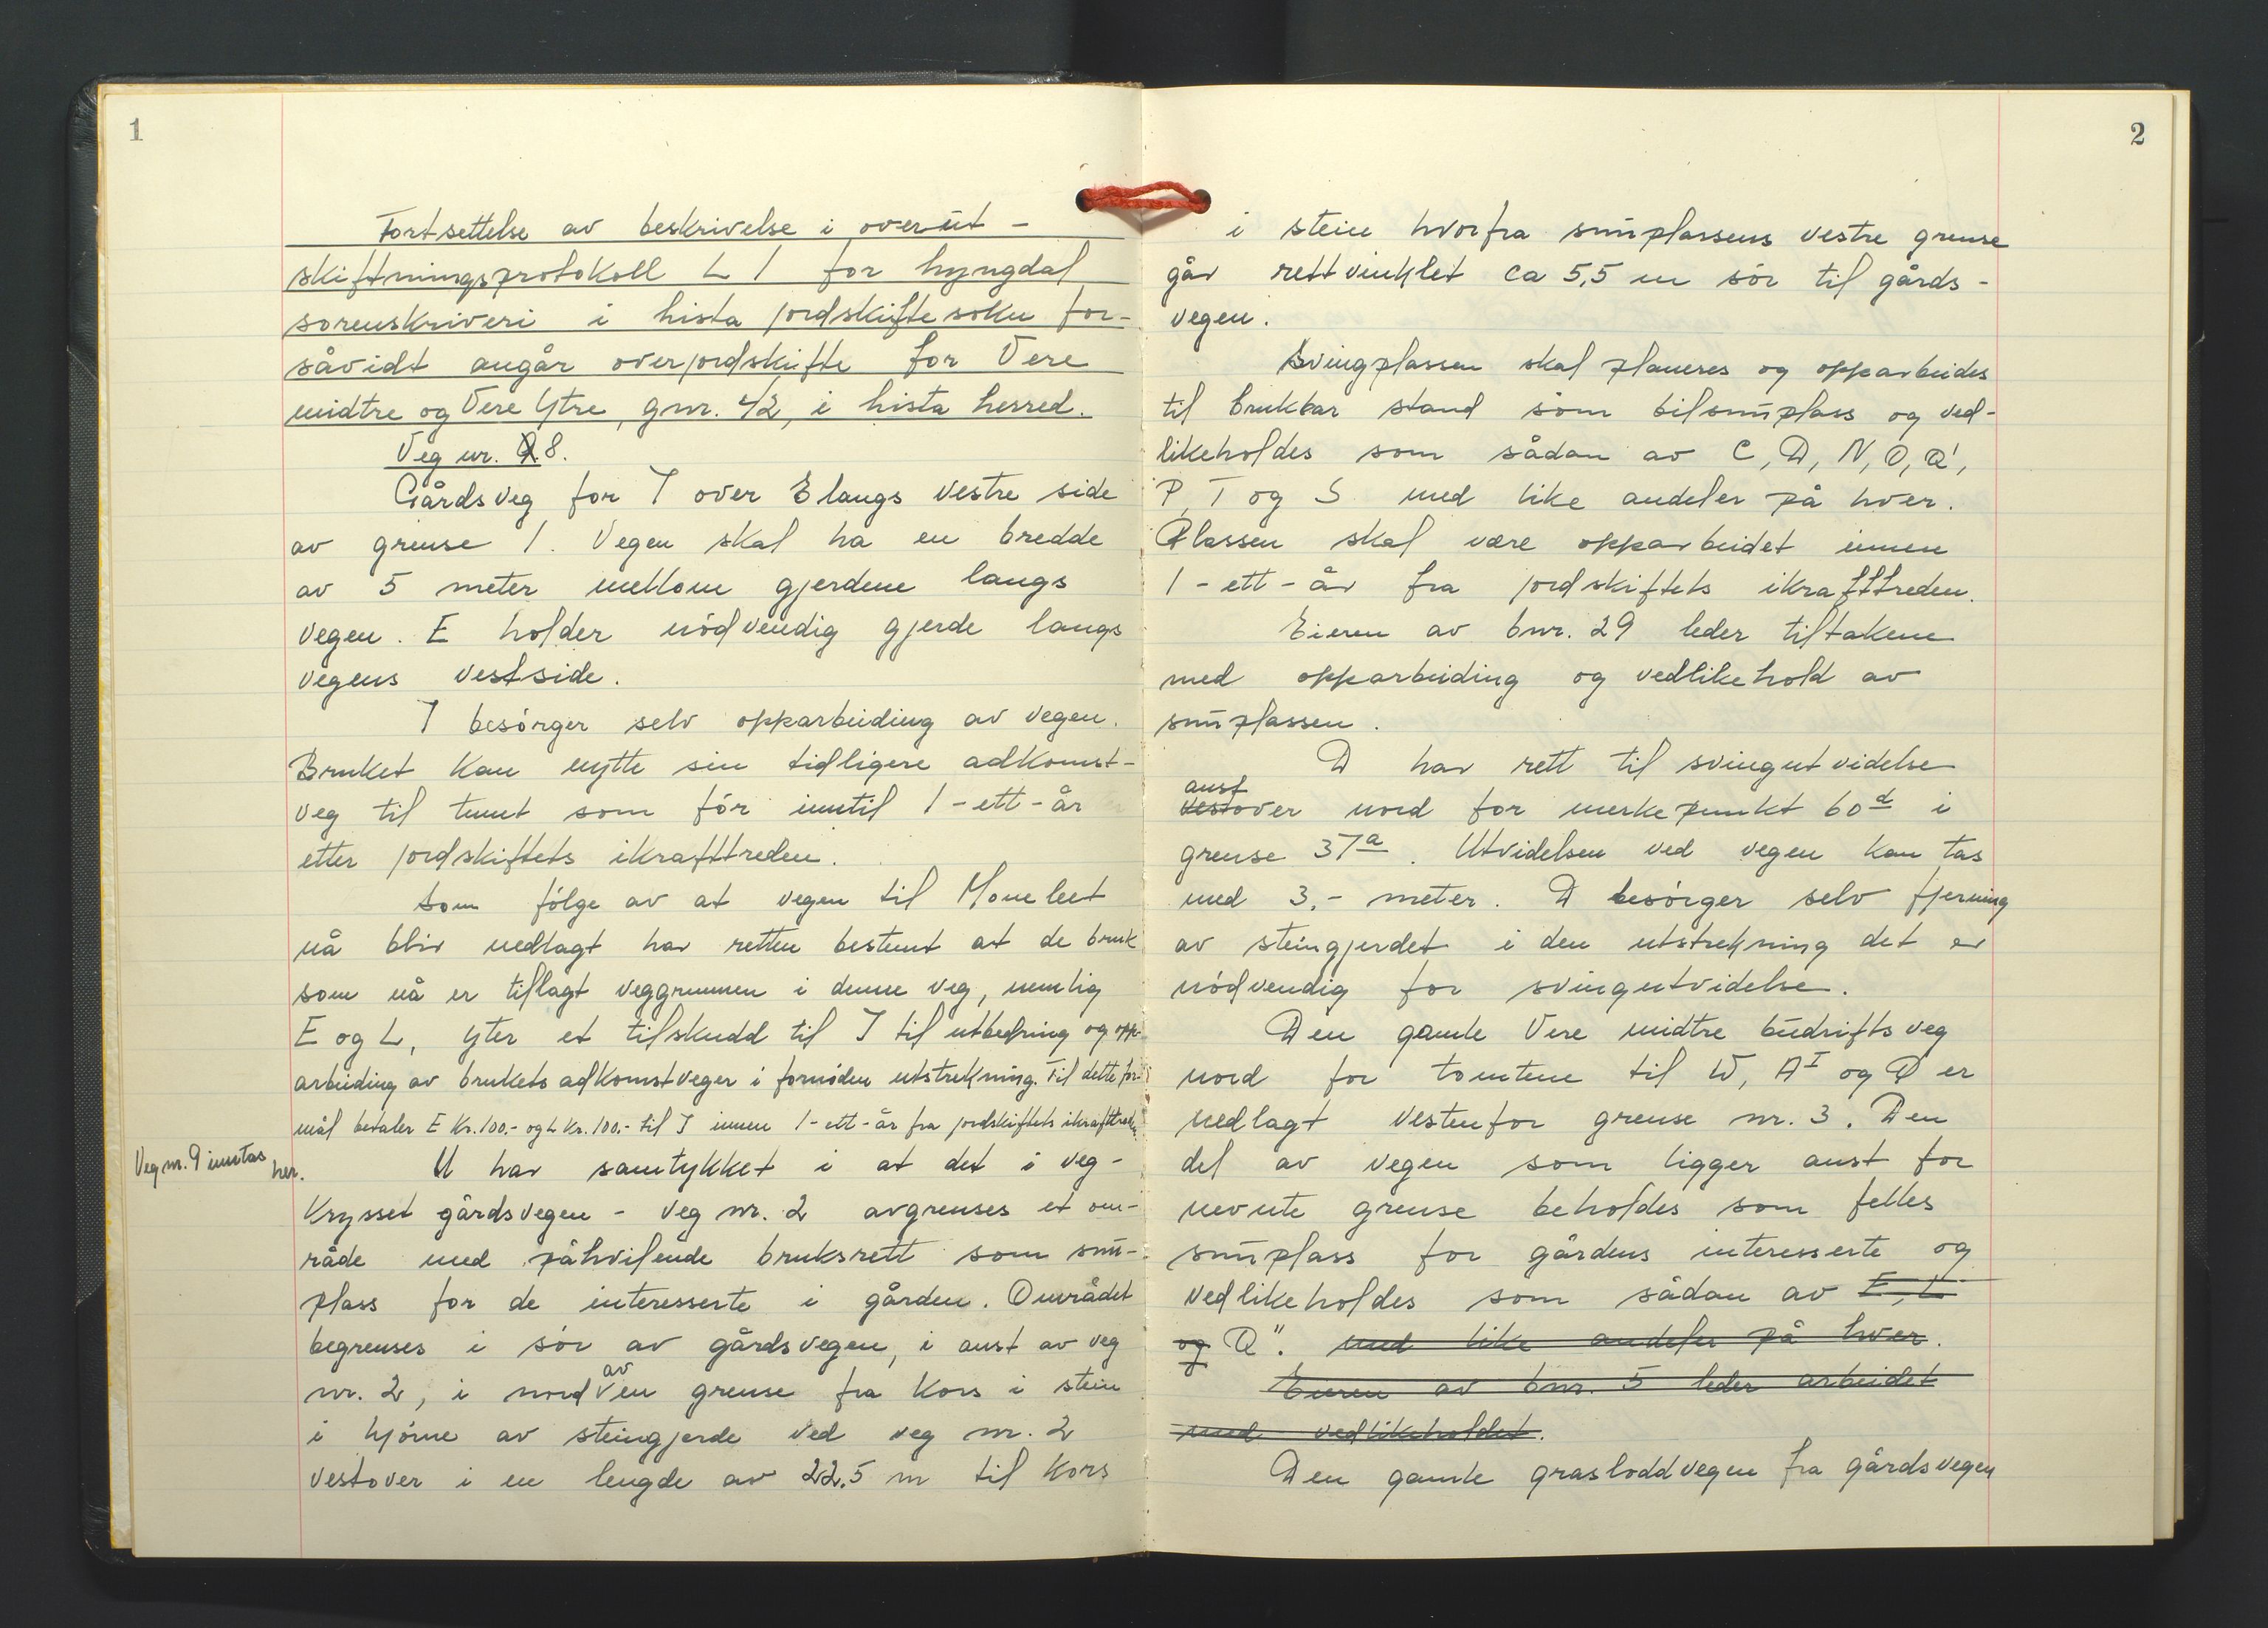 1
Fortsettelse av beskrivelse i overut-
skiftningsprotokoll L 1 for Lyngdal
sorenskriveri i Lista jordskiftesokn for-
såvidt angår overjordskifte for Vere
midtre og Vere Ytre, gnr. 42, i Lista herred.
Veg nr. 8.
Gårdsveg for I over E langs vestre side
av grense 1. Vegen skal ha en bredde
av 5 meter mellom gjerdene langs
vegen. E holder nödvendig gjerde langs
vegens vestside.
I besörger selv opparbeiding av vegen.
Bruket kan nytte sin tidligere adkomst-
veg til tunet som för inntil 1-ett-år
etter jordskiftets ikrafttreden.
Som fölge av at vegen til Moneleet
nå blir nedlagt har retten bestemt at de bruk
som nå er tillagt veggrunnen i denne veg, nemlig
E og L, yter et tilskudd til I til utbedring og opp-
arbeiding av brukets adkomstveger i fornöden utstrekning. Til dette for-
mål betaler E kr. 100.- og L kr. 100.- til I innen 1-ett-år fra jordskiftets ikrafttreden.
Veg nr. 9 inntas
her.
U har samtykket i at det i veg-
krysset gårdsvegen - veg nr. 2 avgrenses et om-
råde med påhvilende bruksrett som snu-
plass for de interesserte i gården. Området
begrenses i sör av gårdsvegen, i aust av veg
nr. 2, i nord av en grense fra kors i stein
i hjörne av steingjerde ved veg nr. 2
vestover i en lengde av 22.5 m til kors
2
i stein hvorfra snuplassens vestre grense
går rettvinklet ca 5,5 m sör til gårds-
vegen.
Svingplassen skal planeres og opparbeides
til brukbar stand som bilsnuplass og ved-
likeholdes som sådan av C, D, N, O, Q',
P, T og S med like andeler på hver.
Plassen skal være opparbeidet innen
1-ett-år fra jordskiftets ikrafttreden.
Eieren av bnr. 29 leder tiltakene
med opparbeiding og vedlikehold av
snuplassen.
D har rett til svingutvidelse
aust
vestover nord for merkepunkt 60d i
grense 37a. Utvidelsen ved vegen kan tas
med 3,- meter. D besörger selv fjerning
av steingjerdet i den utstrekning det er
nödvendig for svingutvidelse.
Den gamle Vere midtre budriftsveg
nord for tomtene til W, AI og Q er
nedlagt vestenfor grense nr. 3. Den
del av vegen som ligger aust for
nevnte grense beholdes som felles
snuplass for gårdens interesserte og
vedlikeholdes som sådan av E, L
og Q". med like andeler på hver.
Eieren av bnr. 5 leder arbeidet
med vedlikeholdet.
Den gamle grasloddvegen fra gårdsvegen